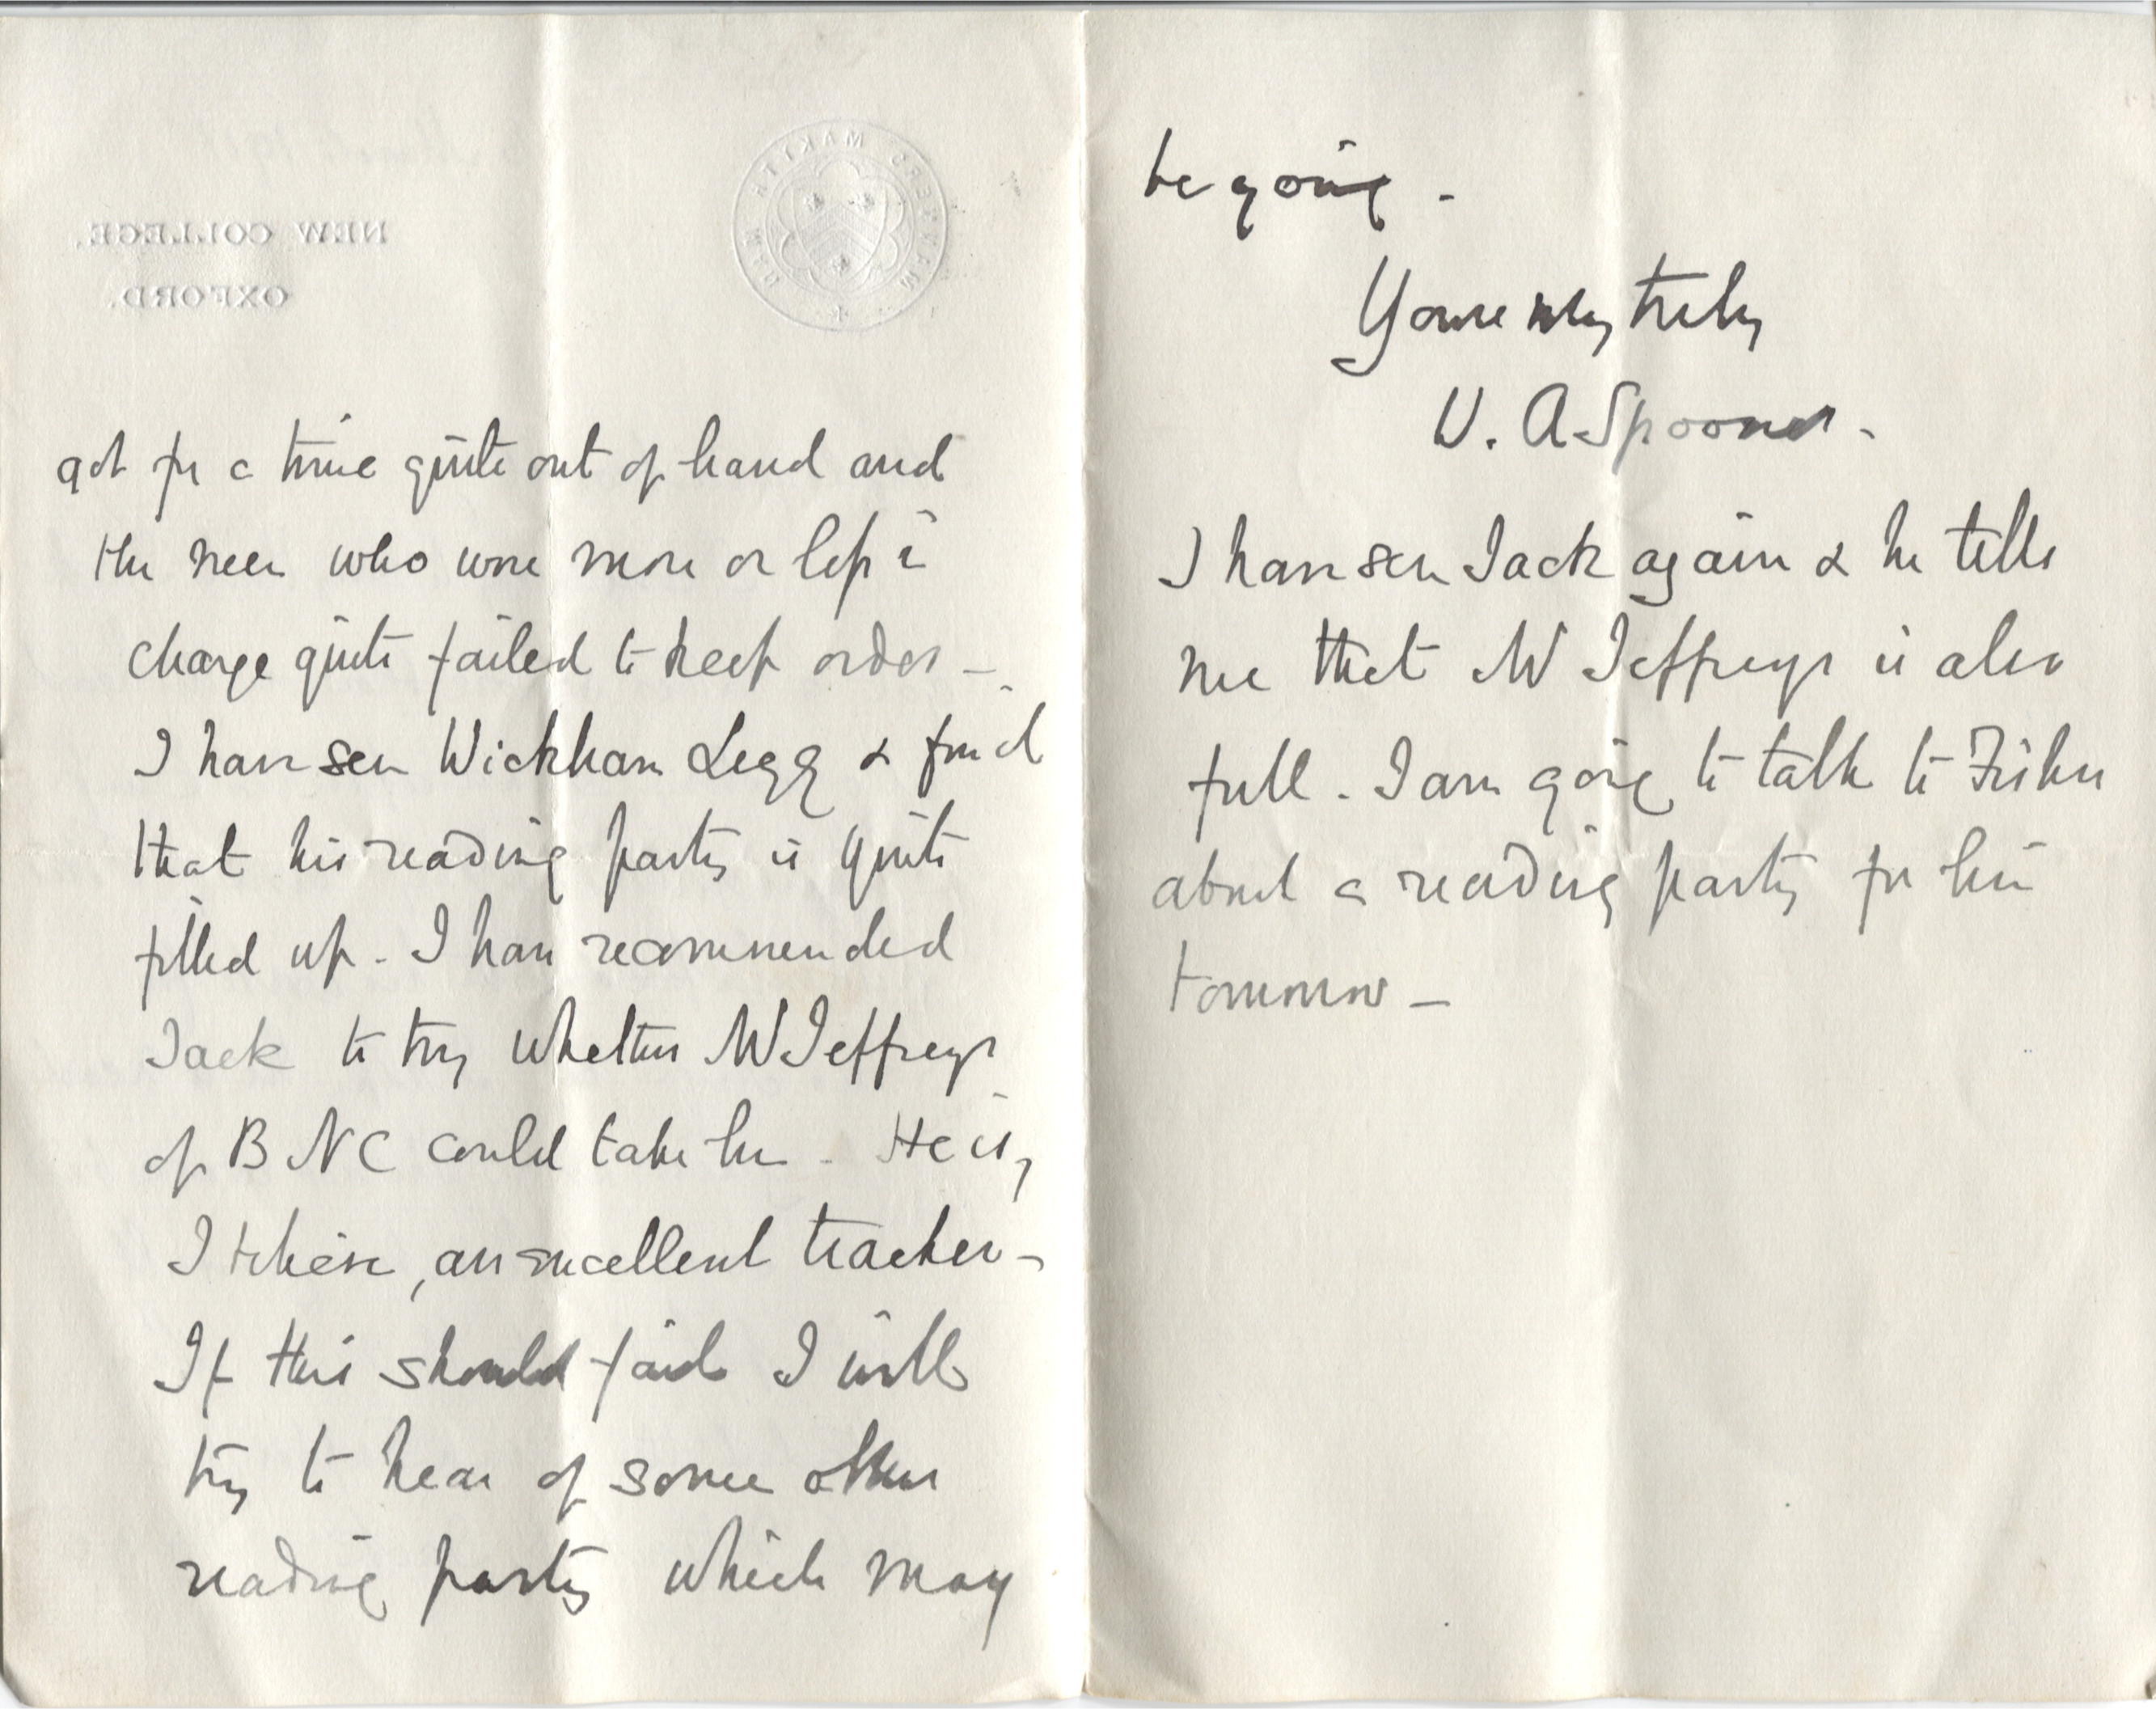 NEW COLLEGE,
OXFORD.
MANNERS MAKYTH MAN
got for a time quite out of hand and
the men who were more or less in
charge quite failed to keep order –
I have seen Wickham Legg & find
that his reading party is quite
filled up. I have recommended
Jack to try whether Mr Jeffreys
of BNC could take him. He is,
I believe, an excellent teacher –
If this should fail I will
try to hear of some other
reading party which may
be going –
Yours very truly
W. A Spooner.
I have seen Jack again & he tells
me that Mr Jeffreys is also
full. I am going to talk to Fisher
about a reading party for him
tomorrow –